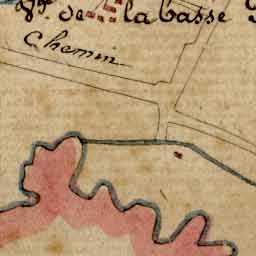 de la basse
Chemin